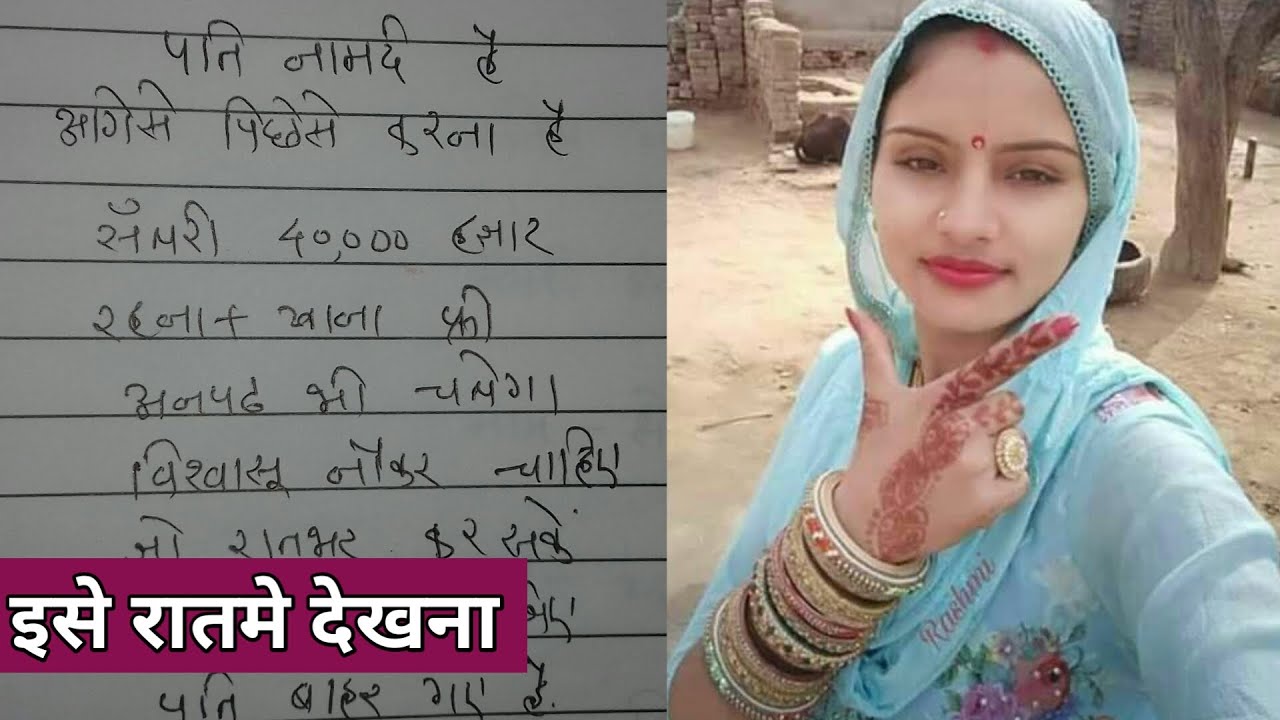 पति नामर्द है
आगेसे पिछेसे करना है
सॅलरी 40,000 हजार
रहना + खाना फ्री
अनपढ भी चलेगा।
विश्वासू नौकर चाहिए
जो रातभर कर सकें
इसे रातमे देखना
पति बाहर गए है.
Rashmi